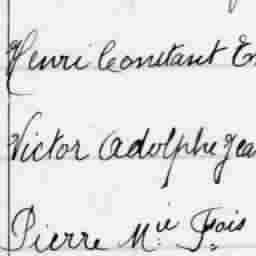 Henri Constant E
Victor Adolphe Jea
Pierre M.ie F.ois